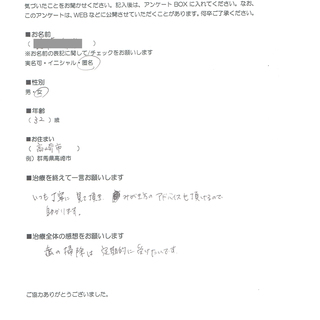 気づいたことをお聞かせください。記入後は、アンケートBOXに入れてください。なお、
このアンケートは、WEBなどに公開させていただくことがあります。何卒ご了承ください。
■お名前
（ ）
※お名前の表記に関して/チェックをお願いします
実名可・イニシャル・匿名
■性別
男・女
■年齢
（ 32 ）歳
■お住まい
（ 高崎市 ）
例）群馬県高崎市
■治療を終えて一言お願いします
いつも丁寧に 見て頂き みがき方の アドバイスも頂けるので
助かります。
■治療全体の感想をお願いします
歯の掃除は 定期的に 受けたいです
ご協力ありがとうございました。